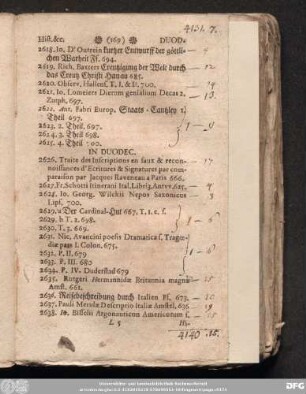 4131. 7.
Hist. &c. (169) DUOD.
2618. Jo. D' Outrein kurtzer Entwurff der göttlichen Warheit Ff. 694.
2619. Rich. Baxters Creutzigung der Welt durch das Creutz Christi Hanau 685. — 12
2620. Observ. Hallens. T. I. & II. 700. — 14
2621. Jo. Lomeiers Dierum genialium Decas 2. Zutph. 697. — 13
2622. Ant. Fabri Europ. Staats-Cantzley 1) Theil 697.
2623. 2. Theil. 697.
2624. 3. Theil 698.
2625. 4. Theil 700.
IN DUODEC.
2626. Traite des Inscriptions en faux & reconnoissances d' Ecritures & Signatures par comparaison par Jacques Raveneau a Paris 666. — 17
2627. Fr. Schotti Itinerarii Ital. Libri 3. Antv. 625. — 4
2628. Jo. Georg. Wilckii Nepos Saxonicus Lips. 700. — 3
2629. a Der Cardinal-Hut 667. T. 1. 2. f.
2629. b T. 2. 698.
2630. T. 3. 669.
2631. Nic. Avancini poesis Dramatica f. Tragœdiæ pars I. Colon. 675.
2632. P. II. 679
2633. P. III. 680
2634. P. IV. Duderstad 679
2635. Rutgeri Hermannidæ Britannia magna Amst. 661. — 15
2636. Reisebeschreibung durch Italien Ff. 673. — 10
2637. Pauli Merulæ Descriptio Italiæ Amstel. 636 — 8
2638. Jo. Bisselii Argonauticon Americorum f.
L 5 Hi-
4140 .15.